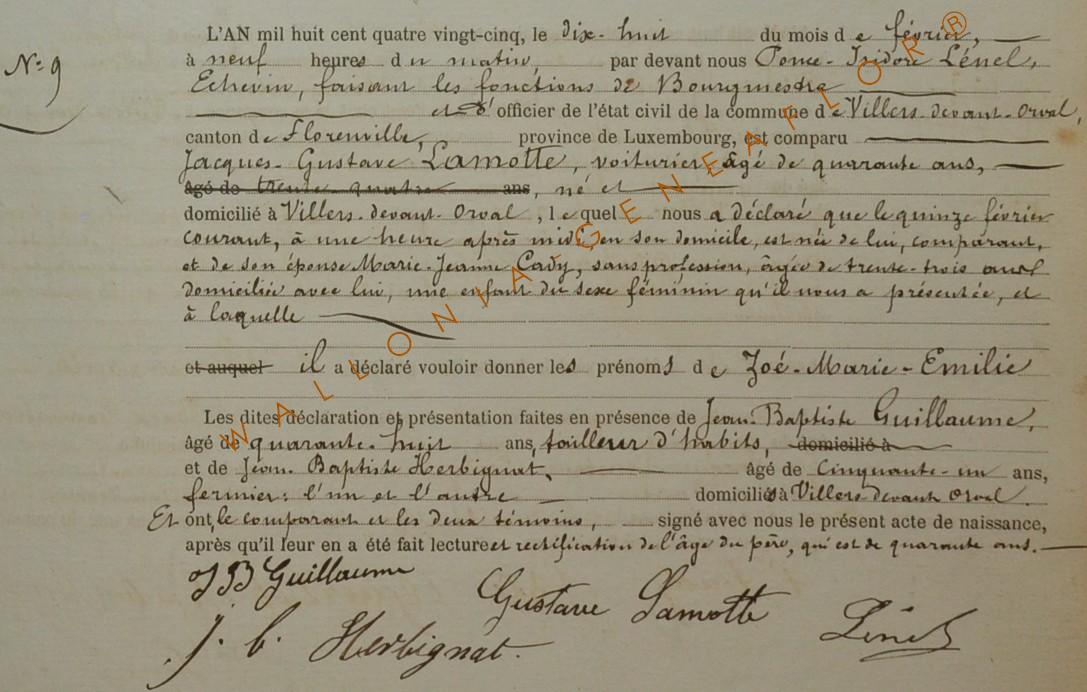 L'AN mil huit cent quatre vingt-cinq, le dix-huit du mois de février,
N° 9
à neuf heures du matin, par devant nous Ponce-Isidore Lénel,
Echevin, faisant les fonctions de Bourgmestre
et d'officier de l'état civil de la commune de Villers-devant-Orval,
canton de Florenville, province de Luxembourg, est comparu
Jacques-Gustave Lamotte, voiturier âgé de quarante ans,
âgé de trente-quatre ans, né et
domicilié à Villers-devant-Orval, lequel nous a déclaré que le quinze février
courant, à une heure après midi en son domicile, est née de lui, comparant,
et de son épouse Marie-Jeanne Cavy, sans profession, âgée de trente-trois ans
domiciliée avec lui, une enfant du sexe féminin qu'il nous a présentée, et
à laquelle
et auquel il a déclaré vouloir donner les prénoms de Zoé-Marie-Emilie
Les dites déclaration et présentation faites en présence de Jean-Baptiste Guillaume,
âgé de quarante-huit ans, tailleur d'habits, domicilié à
et de Jean-Baptiste Herbignat, âgé de cinquante-un ans,
fermier: l'un et l'autre domiciliés à Villers devant Orval.
Et ont, le comparant et les deux témoins, signé avec nous le présent acte de naissance,
après qu'il leur en a été fait lecture et rectification de l'âge du père, qui est de quarante ans.
JB Guillaume
Gustave Lamotte
Lénel
J. b. Herbignat.
WALLONIA GENEAFLOR ®